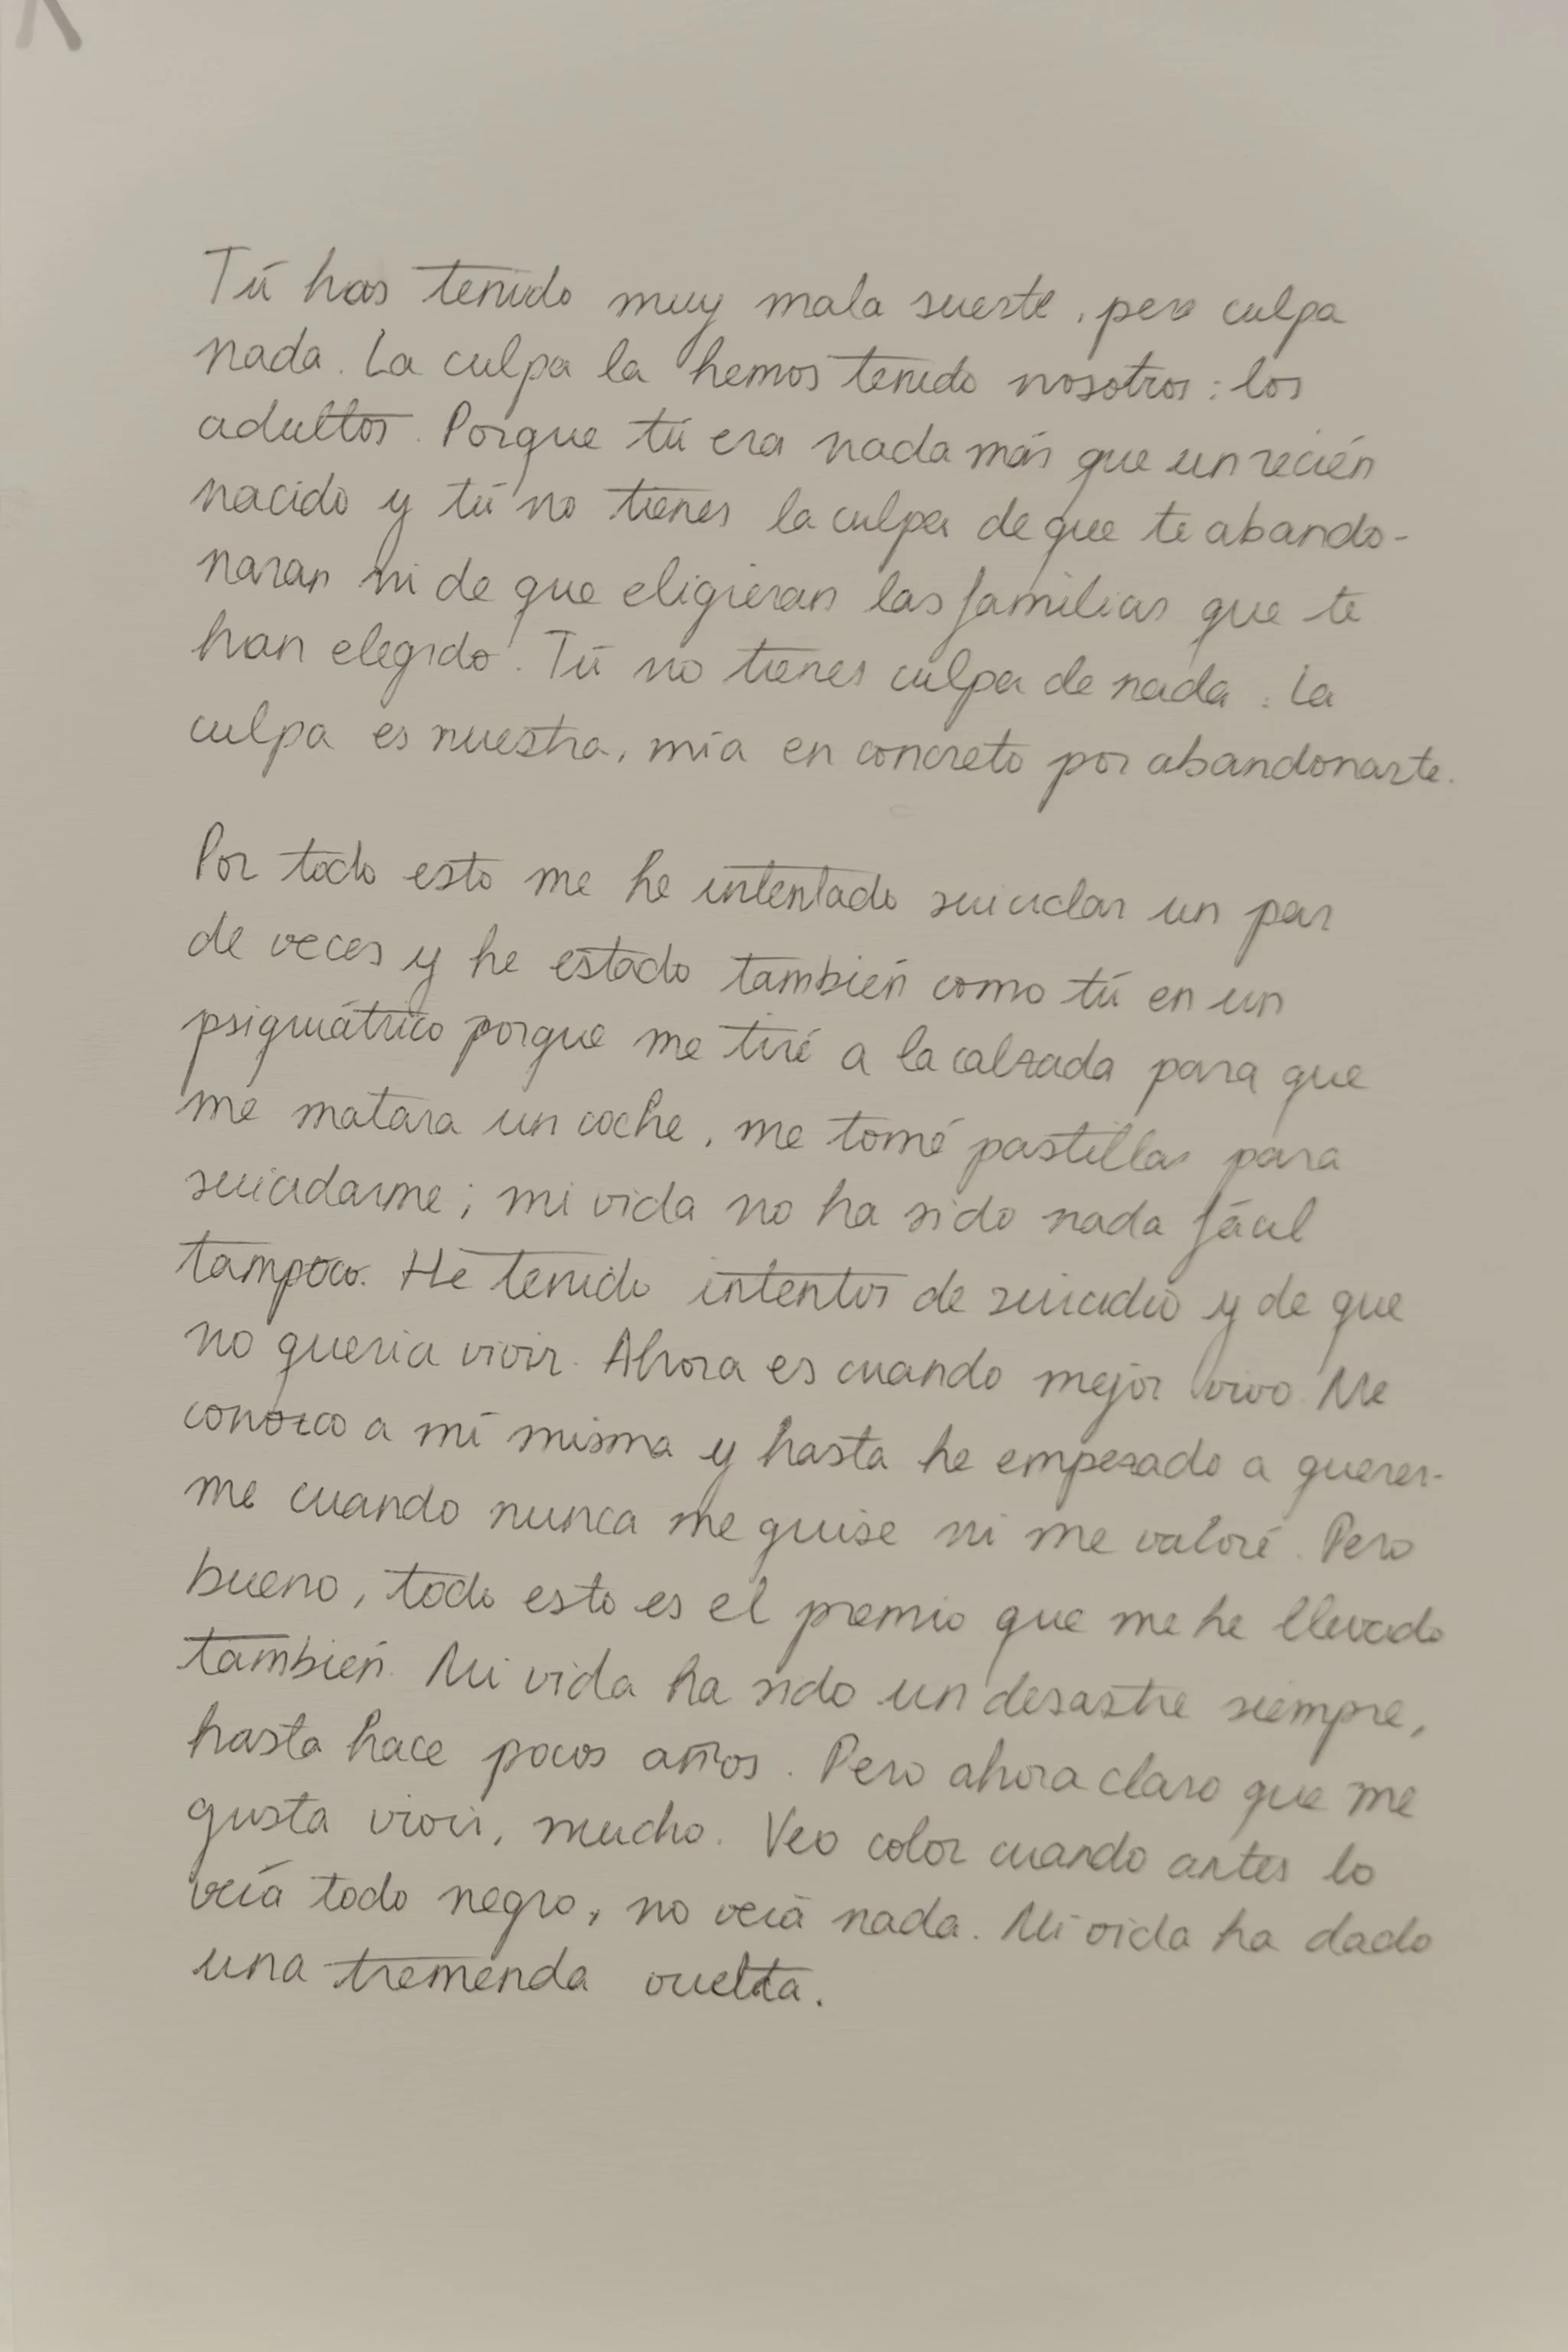 Tú has tenido muy mala suerte, pero culpa
nada. La culpa la hemos tenido nosotros: los
adultos. Porque tú era nada más que un recién
nacido y tú no tienes la culpa de que te abando-
naran ni de que eligieran las familias que te
han elegido. Tú no tienes culpa de nada. La
culpa es nuestra, mía en concreto por abandonarte.
Por todo esto me he intentado suicidar un par
de veces y he estado también como tú en un
psiquiátrico porque me tiré a la calzada para que
me matara un coche, me tomé pastillas para
suicidarme; mi vida no ha sido nada fácil
tampoco. He tenido intentos de suicidio y de que
no quería vivir. Ahora es cuando mejor vivo. Me
conozco a mí misma y hasta he empezado a querer-
me cuando nunca me quise ni me valoré. Pero
bueno, todo esto es el premio que me he llevado
también. Mi vida ha sido un desastre siempre,
hasta hace pocos años. Pero ahora claro que me
gusta vivir, mucho. Veo color cuando antes lo
veía todo negro, no veía nada. Mi vida ha dado
una tremenda vuelta.